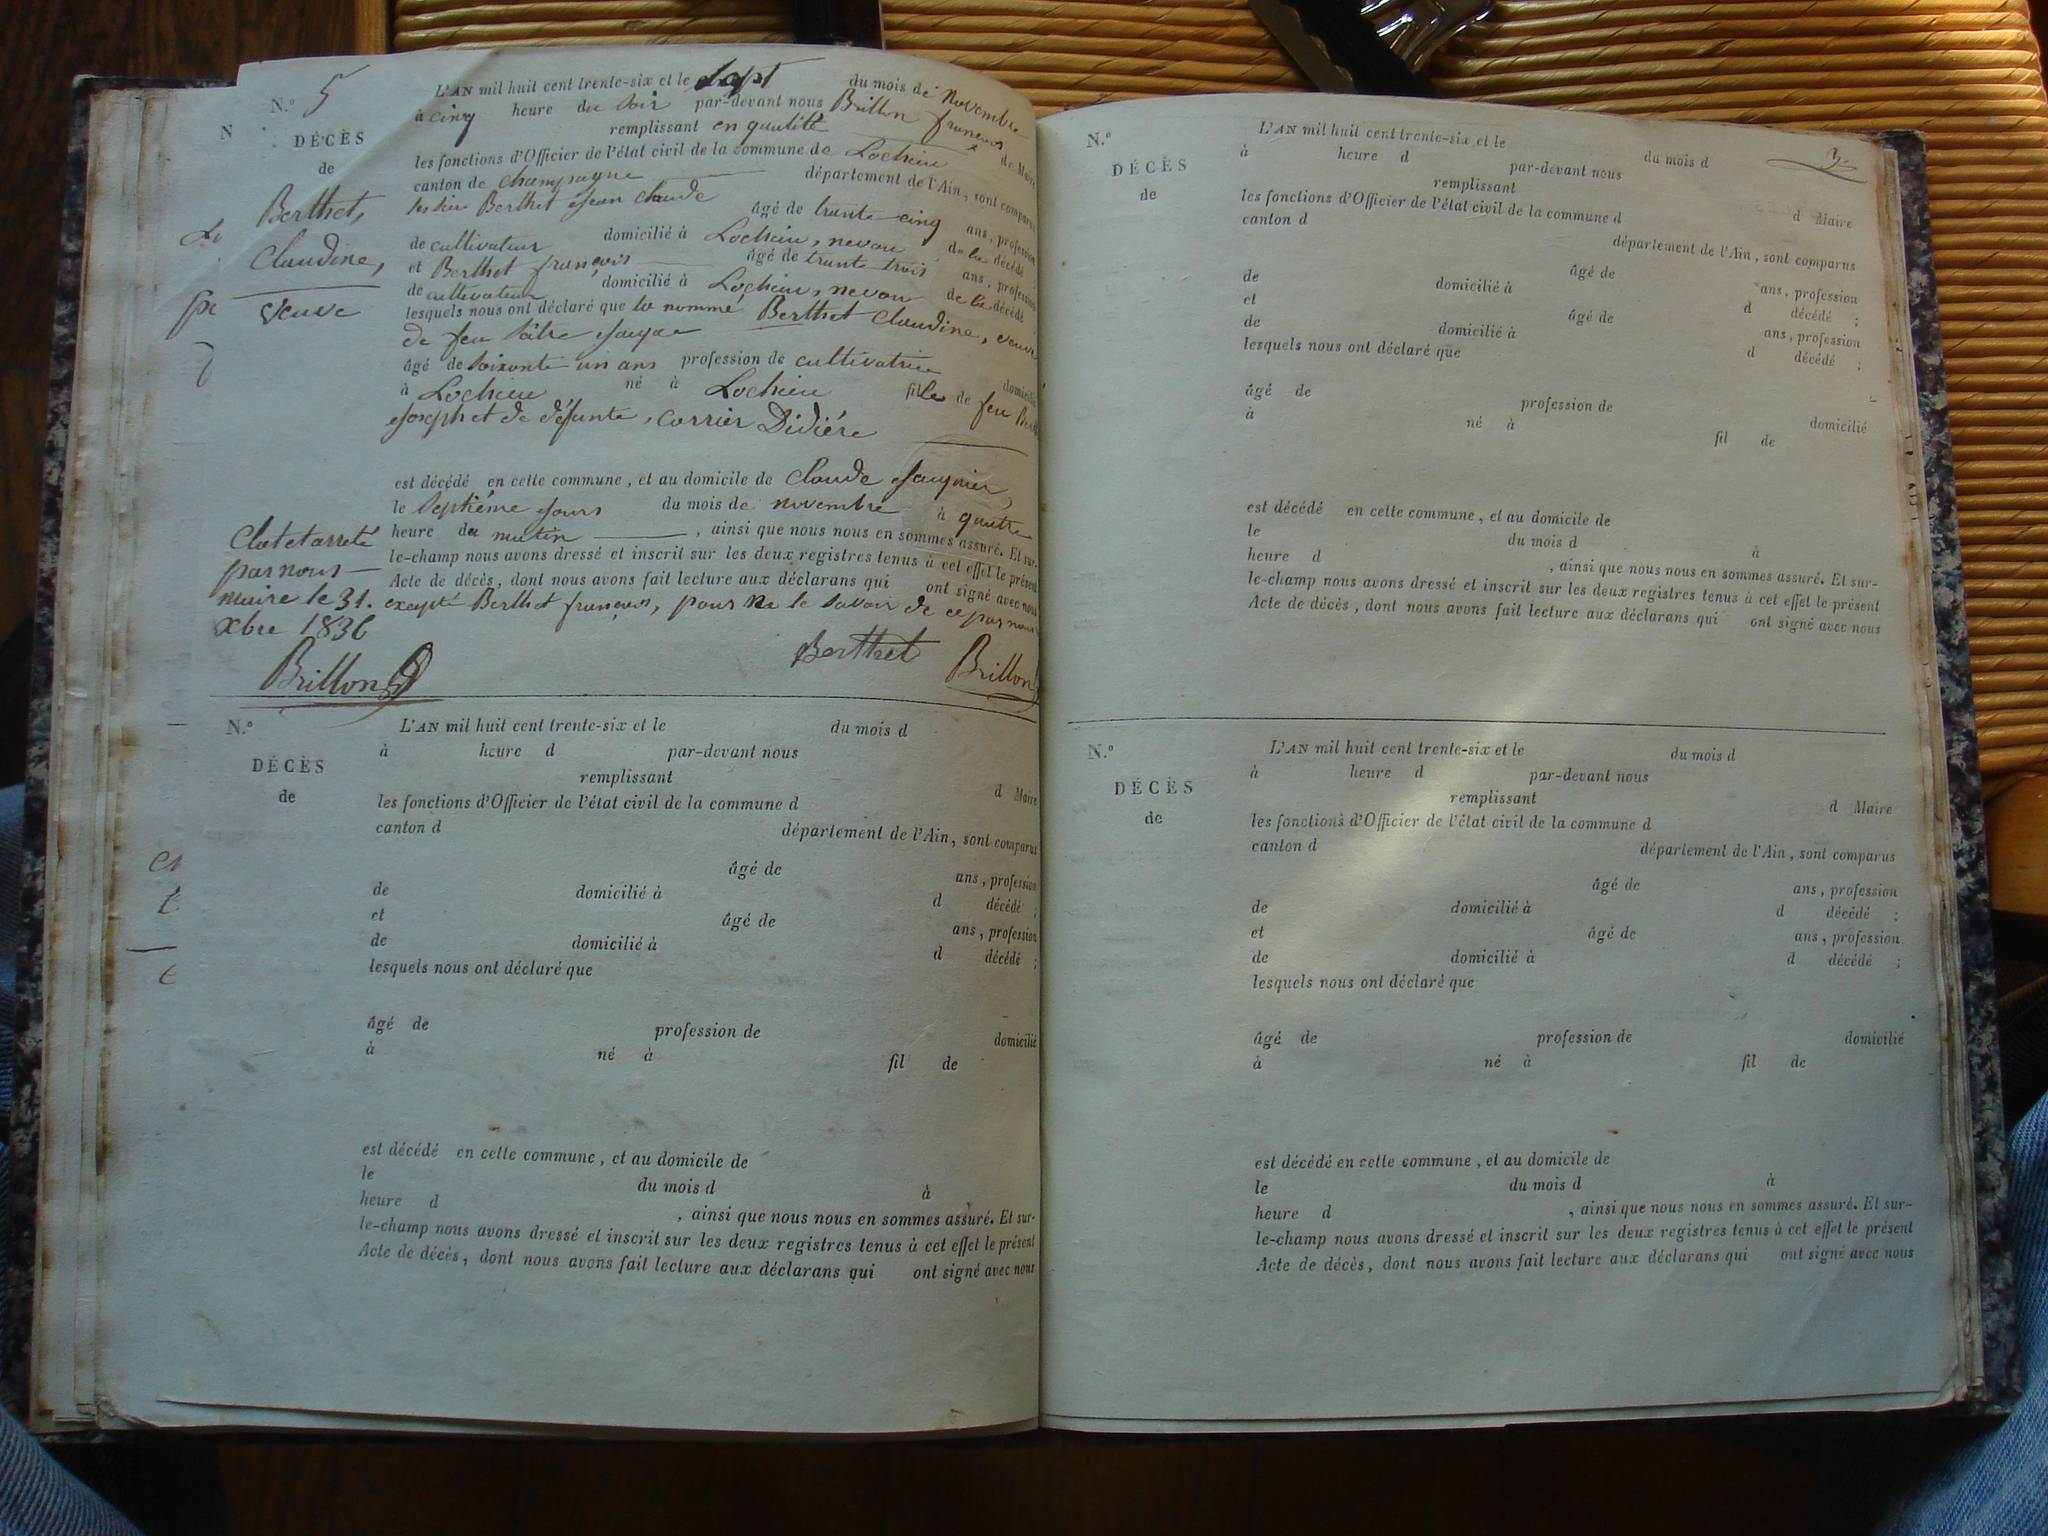 N.o 5
DÉCÈS
de
Berthet,
Claudine,
veuve
L'AN mil huit cent trente-six et le sept du mois de novembre
à cinq heure du soir par-devant nous Brillon françois
remplissant en qualité de Maire
les fonctions d'Officier de l'état civil de la commune de Lochieu
canton de champagne département de l'Ain, sont comparus
Berthet Jean claude âgé de trante cinq ans, profession
de cultivateur domicilié à Lochieu, neveu de la décédé ;
et Berthet françois âgé de trante trois ans, profession
de cultivateur domicilié à Lochieu, neveu de la décédé ;
lesquels nous ont déclaré que la nommé Berthet Claudine, veuve
de feu
âgé de soixante un ans profession de cultivatrice domicilié
à Lochieu né à Lochieu fille de feu
Joseph et de défunte, Carrier Didière
est décédé en cette commune, et au domicile de Claude
le septième jours du mois de novembre à quatre
heure du matin , ainsi que nous nous en sommes assuré. Et sur-
le-champ nous avons dressé et inscrit sur les deux registres tenus à cet effet le présent
Acte de décès, dont nous avons fait lecture aux déclarans qui ont signé avec nous
excepté Berthet françois, pour ne le savoir de ce par nous
Berthet Brillon
Clot et arreté
par nous
maire le 31.
xbre 1836
Brillon
N.o
DÉCÈS
de
L'AN mil huit cent trente-six et le du mois d
à heure d par-devant nous
remplissant d Maire
les fonctions d'Officier de l'état civil de la commune d
canton d département de l'Ain, sont comparus
âgé de ans, profession
de domicilié à d décédé ;
et âgé de ans, profession
de domicilié à d décédé ;
lesquels nous ont déclaré que
âgé de profession de domicilié
à né à fil de
est décédé en cette commune, et au domicile de
le du mois d à
heure d , ainsi que nous nous en sommes assuré. Et sur-
le-champ nous avons dressé et inscrit sur les deux registres tenus à cet effet le présent
Acte de décès, dont nous avons fait lecture aux déclarans qui ont signé avec nous
N.o
DÉCÈS
de
L'AN mil huit cent trente-six et le du mois d
à heure d par-devant nous
remplissant d Maire
les fonctions d'Officier de l'état civil de la commune d
canton d département de l'Ain, sont comparus
âgé de ans, profession
de domicilié à d décédé ;
et âgé de ans, profession
de domicilié à d décédé ;
lesquels nous ont déclaré que
âgé de profession de domicilié
à né à fil de
est décédé en cette commune, et au domicile de
le du mois d à
heure d , ainsi que nous nous en sommes assuré. Et sur-
le-champ nous avons dressé et inscrit sur les deux registres tenus à cet effet le présent
Acte de décès, dont nous avons fait lecture aux déclarans qui ont signé avec nous
N.o
DÉCÈS
de
L'AN mil huit cent trente-six et le du mois d
à heure d par-devant nous
remplissant d Maire
les fonctions d'Officier de l'état civil de la commune d
canton d département de l'Ain, sont comparus
âgé de ans, profession
de domicilié à d décédé ;
et âgé de ans, profession
de domicilié à d décédé ;
lesquels nous ont déclaré que
âgé de profession de domicilié
à né à fil de
est décédé en cette commune, et au domicile de
le du mois d à
heure d , ainsi que nous nous en sommes assuré. Et sur-
le-champ nous avons dressé et inscrit sur les deux registres tenus à cet effet le présent
Acte de décès, dont nous avons fait lecture aux déclarans qui ont signé avec nous